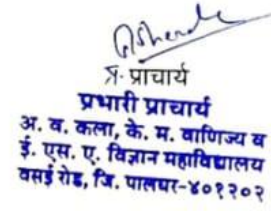 प्र. प्राचार्य
प्रभारी प्राचार्य
अ. व. कला, के. म. वाणिज्य व
ई. एस. ए. विज्ञान महाविद्यालय
वसई रोड, जि. पालघर-४०१२०२